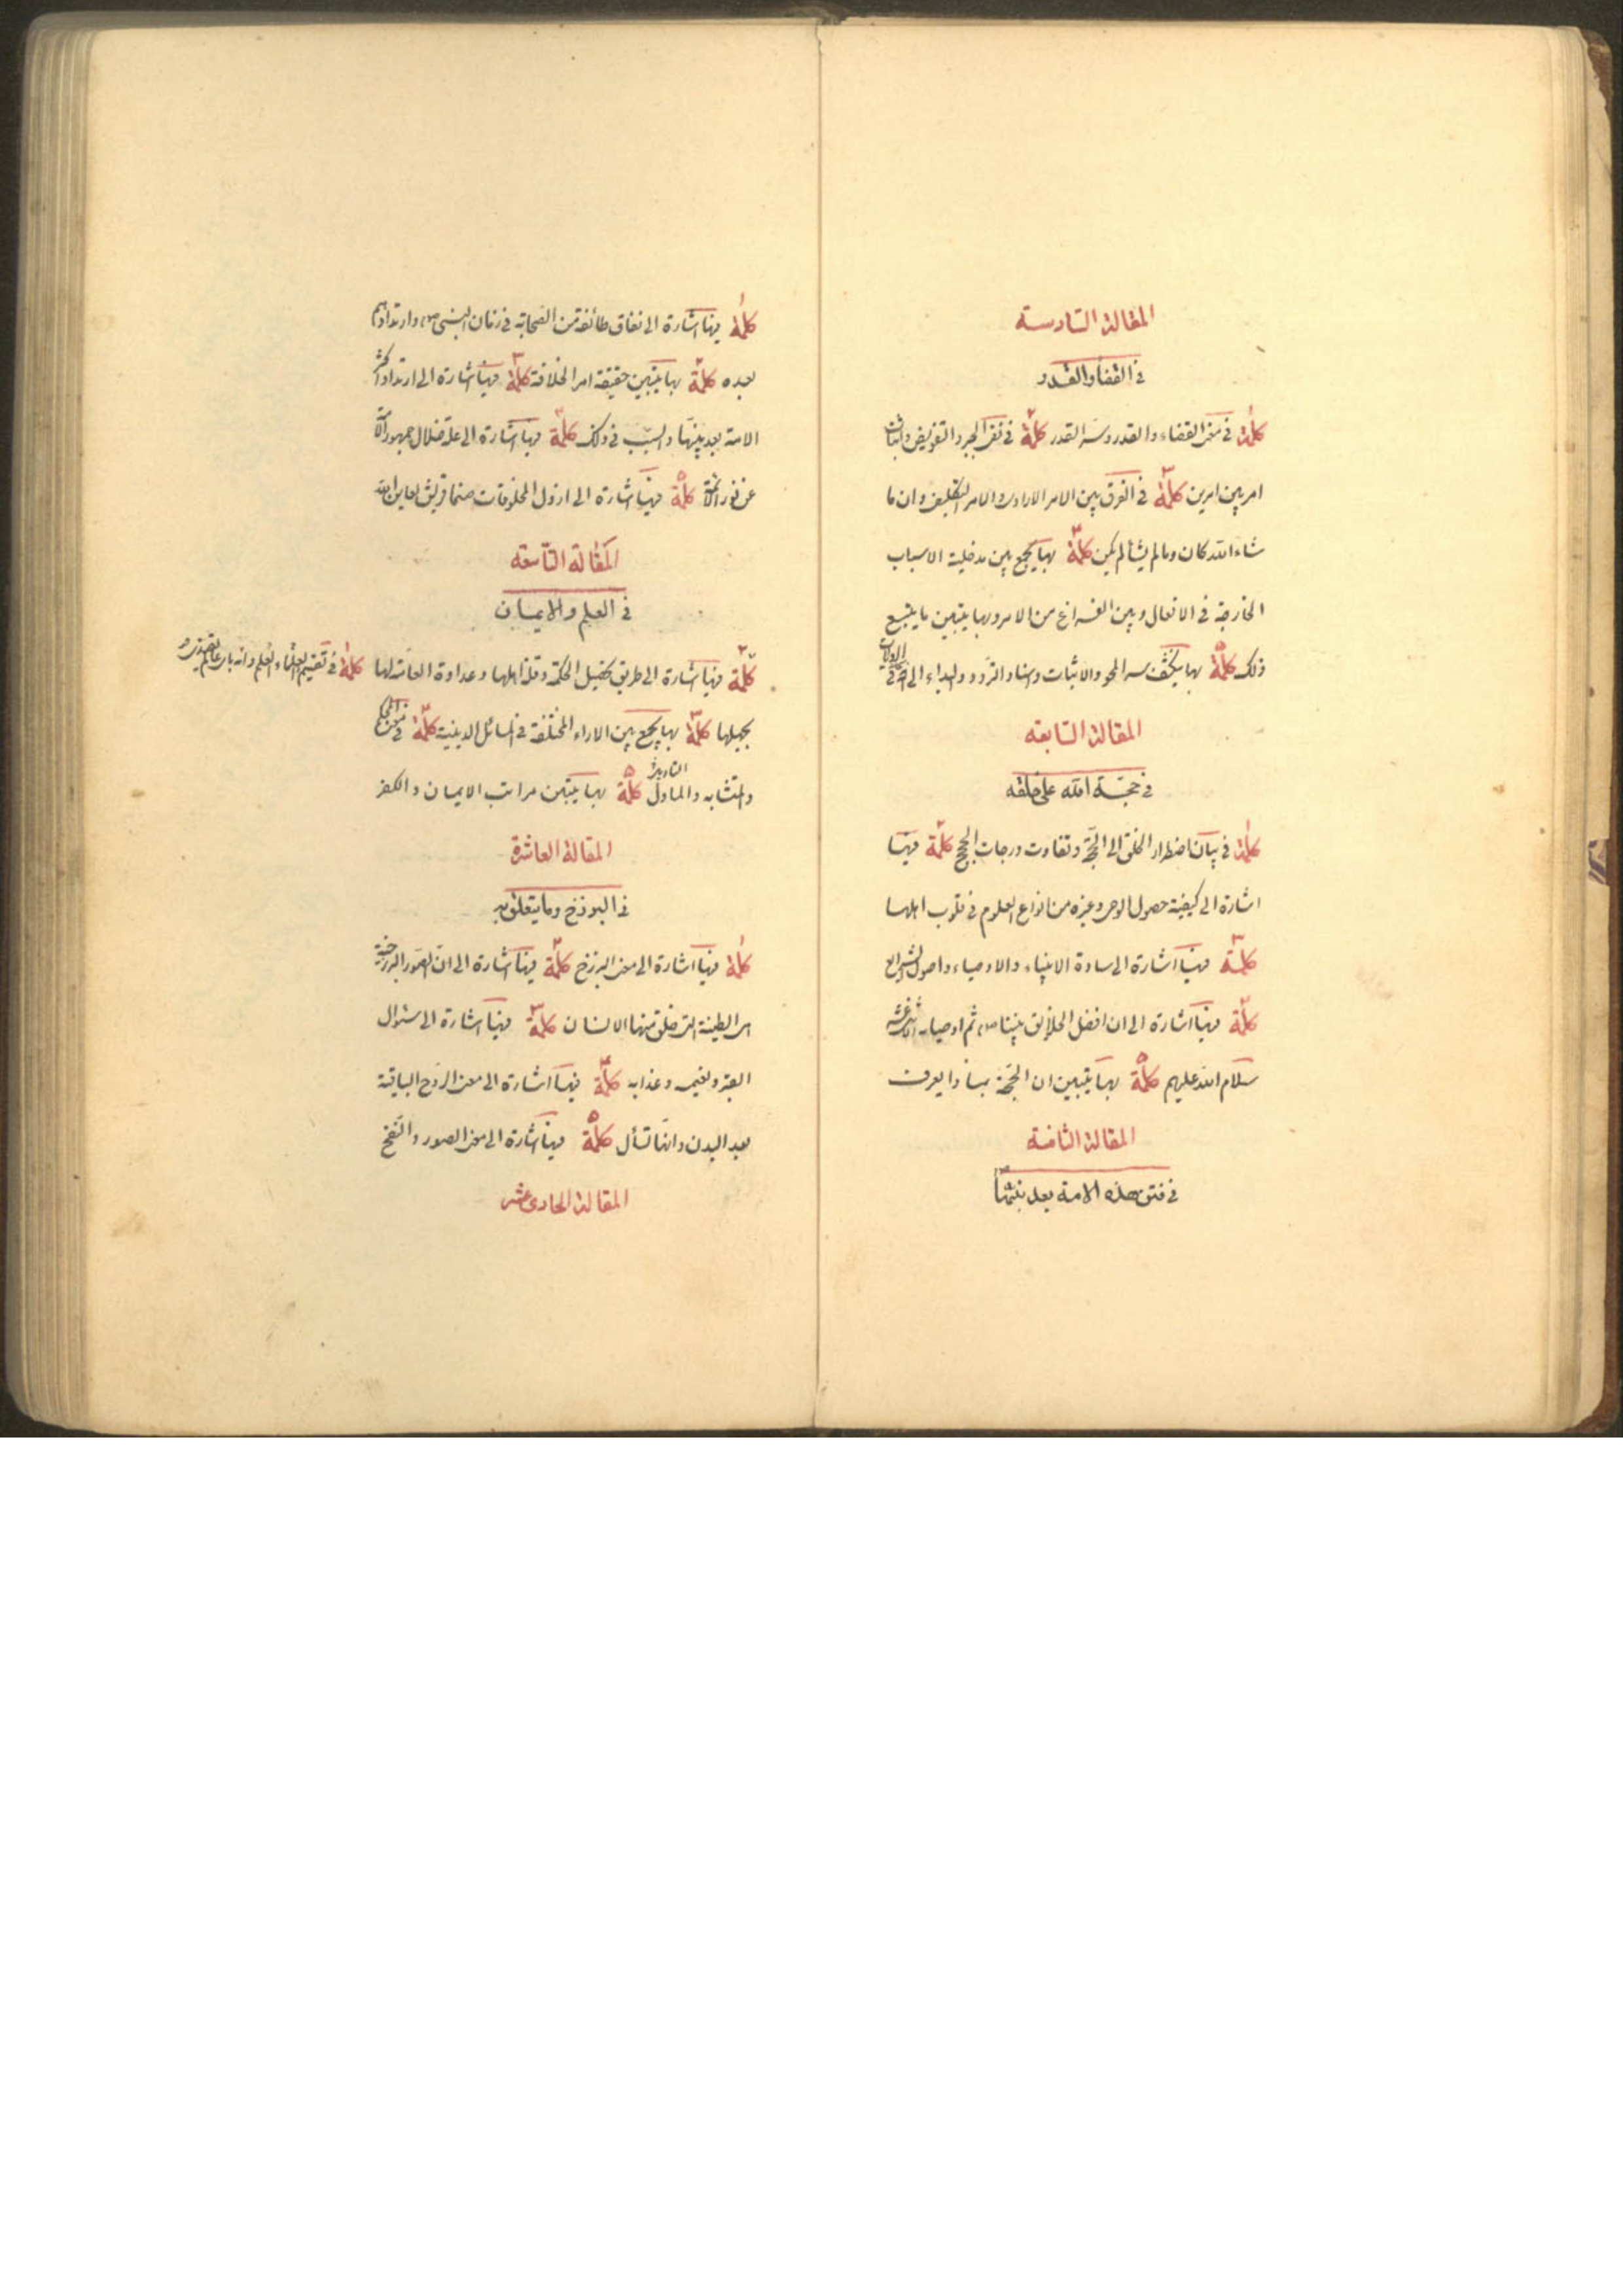 المقالة السادسة
في القضاء والقدر
كلمة في معنى القضاء والقدر وسر القدر كلمة في نفي الجبر والتفويض واثبات
امر بين امرين كلمة في الفرق بين الامر الارادي والامر التكليفي وان ما
شاء الله كان وما لم يشأ لم يكن كلمة بها يجمع بين مدخلية الاسباب
الخارجة في الافعال وبين الفراغ من الامر وبها يتبين ما يتبع
ذلك كلمة بها ينكشف سر المحو والاثبات واسناد التردد والبداء الى الله
المقالة السابعة
في حجة الله على خلقه
كلمة في بيان اضطرار الخلق الى الحجة وتفاوت درجات الحجج كلمة فيها
اشارة الى كيفية حصول الوحي وغيره من انواع العلوم في قلوب اهلها
كلمة فيها اشارة الى سادة الانبياء والاوصياء واصول الشرايع
كلمة فيها اشارة الى ان افضل الخلايق نبينا ص ثم اوصياءه الاثني عشر
سلام الله عليهم كلمة بها يتبين ان الحجة بماذا يعرف
المقالة الثامنة
في فتن هذه الامة بعد نبيها
كلمة فيها اشارة الى نفاق طائفة من الصحابة في زمان النبي ص وارتدادهم
بعده كلمة بها يتبين حقيقة امر الخلافة كلمة فيها اشارة الى ارتداد اكثر
الامة بعد نبيها والسبب في ذلك كلمة فيها اشارة الى علة ضلال جمهور الامة
عن نور الائمة كلمة فيها اشارة الى ارذل المخلوقات صنما قريش لعاين الله
المقالة التاسعة
في العلم والايمان
كلمة في تقسيم العلماء والعلم وانه باي
كلمة فيها اشارة الى طريق تحصيل الحكمة وقلة اهلها وعداوة العامة لها
بجهلها كلمة بها يجمع بين الاراء المختلفة في المسائل الدينية كلمة في معنى المحكم
والمتشابه والماول التاويل كلمة بها يتبين مراتب الايمان والكفر
المقالة العاشرة
في البرزخ وما يتعلق به
كلمة فيها اشارة الى معنى البرزخ كلمة فيها اشارة الى ان الصور البرزخية
هي الطينة التي خلق منها الانسان كلمة فيها اشارة الى سئوال
القبر ونعيمه وعذابه كلمة فيها اشارة الى معنى الروح الباقية
بعد البدن وانها تسأل كلمة فيها اشارة الى معنى الصور والنفخ
المقالة الحادي عشر